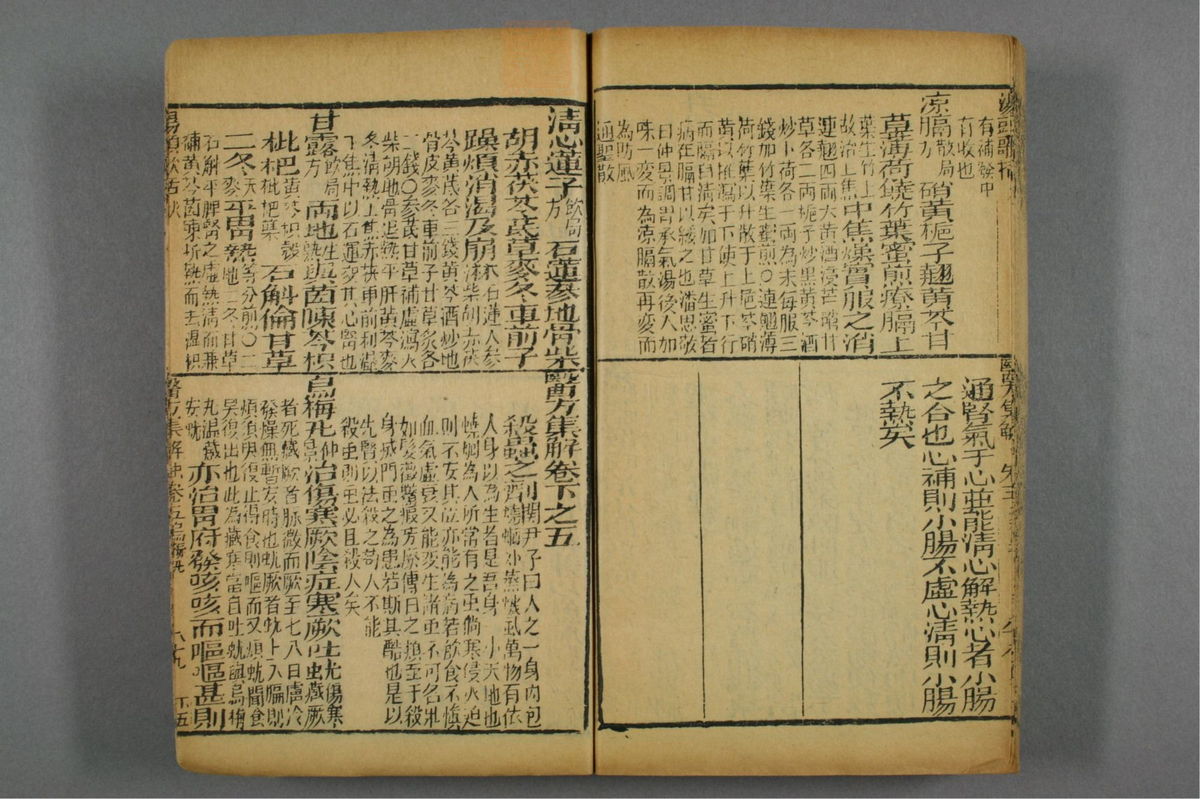 湯頭歌括
有補發中
有收也
涼膈散局方
硝黃梔子翹黃芩甘
草薄荷饒竹葉蜜煎療膈上
葉生竹上中焦燥實服之消
故治上焦
連翹四兩大黃酒浸芒硝甘
草各二兩梔子炒黑黃芩酒
炒薄荷各一兩為末每服三
錢加竹葉生蜜煎〇連翹薄
荷竹葉以升散于上梔芩硝
黃以推瀉于下使上升下行
而膈自清矣加甘草生蜜者
病在膈甘以緩之也潘思敬
曰仲景調胃承氣湯後人加
味一變而為涼膈散再變而
為防風
通聖散
通腎氣于心並能清心解熱心者小腸
之合也心補則小腸不虛心清則小腸
不熱矣
清心蓮子方飲局石蓮參地骨柴
胡赤茯芪草麥冬車前子
躁煩消渴及崩淋石蓮人參柴胡赤茯
苓黃芪各三錢黃芩酒炒地
骨皮麥冬車前子甘草炙各
二錢〇參芪甘草補虛瀉火
柴胡地骨退熱平肝黃芩麥
冬清熱上焦赤茯車前利濕
下焦中以石蓮交其心腎也
甘露飲局方兩地生熟與茵陳芩枳
枇杷黃芩枳殼枇杷葉石斛倫甘草
二冬天麥平胃熱等分煎〇二地二冬甘草
石斛平脾腎之虛熱清而兼
補黃芩茵陳折熱而去濕枳
湯頭歌括
醫方集解卷下之五
殺蟲之劑關尹子曰人之一身內包
蟯蛔外蒸蟣虱萬物有依
人身以為生者是吾身一小天地也
蟯蛔為人所常有之蟲倘寒侵火迫
則不安其位亦能為病若飲食不慎
血氣虛衰又能變生諸蟲不可名狀
如髮癥鱉瘕勞瘵傳尸之類至于殺
身滅門蟲之為患若斯其酷也是以
先賢以法殺之苟人不能
殺蟲則蟲必且殺人矣
烏梅丸仲景治傷寒厥陰症寒厥吐蚘傷寒
臟厥者死臟厥者脈微而厥至七八日膚冷
發躁無暫安時也蚘厥者蚘上入膈則
煩須臾復止得食則嘔而又煩蚘聞食
臭復出也此為臟寒當自吐蚘與烏梅
丸溫臟安蚘亦治胃府發咳咳而嘔嘔甚則
醫方集解